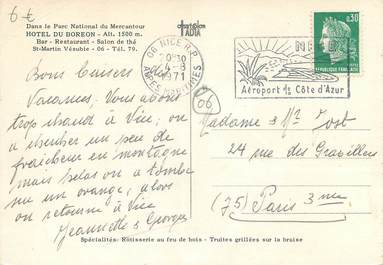 6€
Dans le Parc National du Mercantour
HOTEL DU BOREON - Alt. 1500 m.
Bar - Restaurant - Salon de thé
St-Martin Vésubie - 06 - Tél. 79.
TADIA
06 NICE R.P.
24-8
1971
ALPES MARITIMES
NICE
Aéroport Nice Côte d'Azur
0,30
REPUBLIQUE FRANÇAISE
POSTES
Bons baisers de
Vacances. Nous avons
trop chaud à Nice; on
a chercher un peu de
fraicheur en montagne
mais hélas on a tombé
sur un orange; alors
on retourne à Nice
Jeannette & Georges
06
Madame & Mr Jost
24 rue des Gravilliers
(75) Paris 3me
Spécialités: Rôtisserie au feu de bois - Truites grillées sur la braise